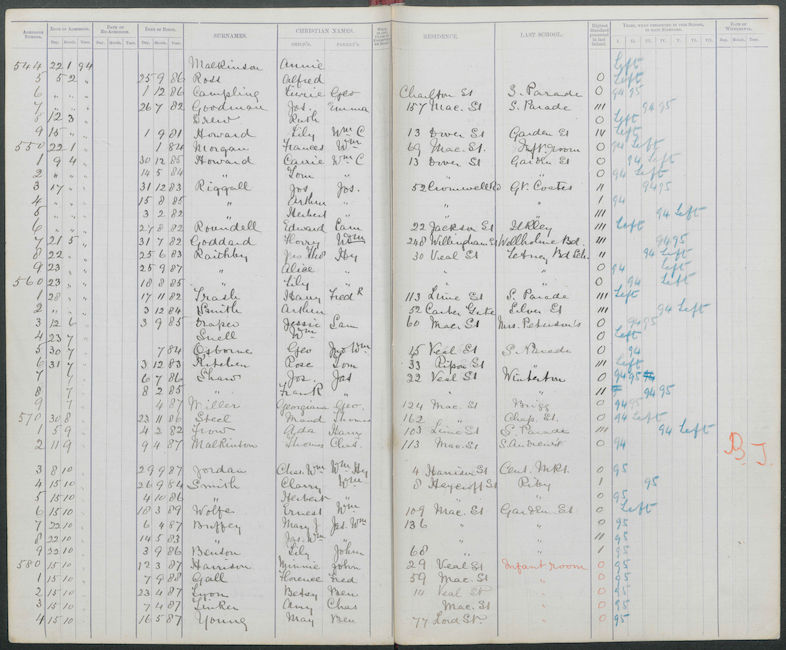 ADMISSION NUMBER. DATE OF ADMISSION. DATE OF RE-ADMISSION. DATE OF BIRTH. SURNAMES. CHRISTIAN NAMES. RESIDENCE. LAST SCHOOL. DATE OF WITHDRAWAL.
Day. Month. Year. Day. Month. Year. Day. Month. Year. CHILD'S. PARENT'S. I. II. III. IV. V. VI. VII. Day. Month. Year.
544 22 1 94 Malkinson Annie Left
5 5 2 " 25 9 86 Ross Alfred 0 Left
6 " " " 1 12 86 Campling Geo Charlton St S. Parade 0 94 95
7 " " " 26 7 82 Goodman Jos. Emma 157 Mac. St S. Parade III 94 95
8 12 3 " Drew Ruth 0 Left
9 15 " " 1 9 81 Howard Lily Wm C 13 Dover St Garden St IV Left
550 22 1 " 1 84 Morgan Frances Wm 69 Mac. St. Inft. room 0 94 Left
1 9 4 " 30 12 85 Howard Carrie Wm C 13 Dover St Garden St 0 94 Left
2 " " " 14 5 84 " Tom " " " 0 94 Left
3 17 " " 31 12 83 Riggall Jos Jos. 52 Cromwell Rd Gt. Coates II 94 95
4 " " " 15 8 85 " Arthur " " " 1 94
5 " " " 3 2 82 " Herbert " " " III 94 Left
6 " " " 27 8 82 Roundell Edward Cam 22 Jackson St Ilkley III Left
7 21 5 " 31 7 82 Goddard Harry Wm 248 Willingham St Wellholme Bd. III 94 95
8 22 " " 25 6 83 Raithby Hy 30 Veal St II 94 Left
9 23 " " 25 9 87 " Alice " " " 0 94 Left
560 23 " " 18 8 85 " Lily " " " 0 94 Left
1 28 " " 17 11 82 Trash Harry Fred K 113 Line St S. Parade III Left
2 " " " 3 12 84 Smith Arthur 52 Carter Gate Silver St III 94 Left
3 12 6 " 3 9 85 Draper Jessie Sam 60 Mac. St Mrs. Peterson's 0 94 95
4 23 7 " Snell Wm 0 Left
5 30 7 " 7 84 Osborne Geo Jno Wm 15 Veal St S. Parade 0 94
6 31 7 " 3 12 83 Kitchen Rose Tom 33 Ripon St " III Left
7 " 7 " 6 7 86 Shaw Jos Jos 32 Veal St Winterton 0 94 95
8 " 7 " 8 2 85 " Frank " " " II 94 95
9 " 7 " 4 87 Willer Georgiana Geo. 124 Mac. St Brigg 0 94 95
570 30 8 " 23 11 86 Steel Maud Thomas 162 " Chap. St. 0 94 Left
1 5 9 " 4 2 82 Frow Ada Harry 103 Line St S. Parade III 94 Left
2 11 9 " 9 4 87 Malkinson Thomas Chas. 113 Mac. St S. Andrew's 0 94
B. J.
3 8 10 " 29 9 87 Jordan Chas. Wm Wm Hy 4 Harrison St Cent. Mkt. 0 95
4 15 10 " 26 9 84 Smith Clarry Wm 8 Heycroft St Riby 1 95
5 15 10 " 4 10 86 " Herbert " " " 0 95
6 15 10 " 18 3 89 Wolfe Ernest Wm 109 Mac. St Garden St 0 Left
7 22 10 " 6 4 87 Buffey Mary J Jas. Wm 136 " " 0 95
8 22 10 " 14 5 83 " Jas. Wm " " " II 95
9 22 10 " 3 9 86 Benson Lily John 68 " " 1 95
580 15 10 " 12 3 87 Harrison Minnie John 29 Veal St Infant room 0 95
1 15 10 " 7 9 88 Gall Florence Fred 59 Mac. St " 0 95
2 15 10 " 23 4 87 Lyon Betsy Ben 14 Veal St " 0 95
3 15 10 " 7 4 87 Linker Amy Chas Mac. St " 0 95
4 15 10 " 16 5 87 Young May Ben 77 Lord St. " 0 95